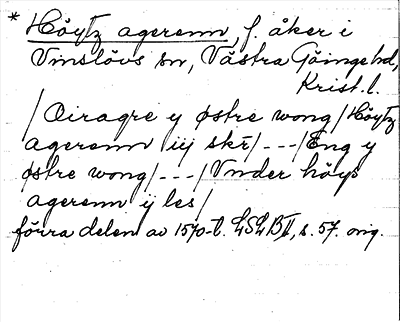 * Höytz agerenn, f. åker i
Vinslövs sn, Västra Göinge hd,
Krist. l.
/ Oiragre y østre wong / Höytz
agerenn iij skr̄ / - - - / Eng y
østre wong / - - - / Vnder höys
agerenn ij les /
förra delen av 1570-t. LSLB II, s. 57. orig.